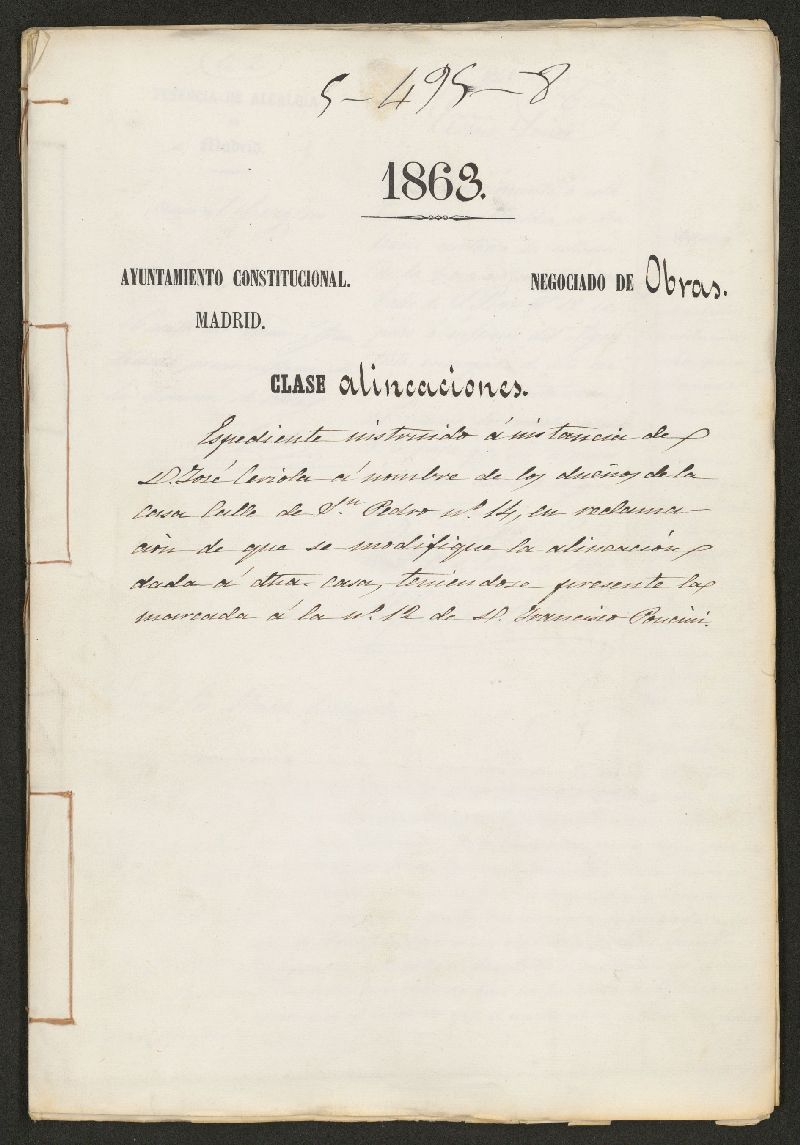 5-495-8
1863.
AYUNTAMIENTO CONSTITUCIONAL.
MADRID.
NEGOCIADO DE Obras.
CLASE alineaciones.
Espediente instruido á instancia de
D. José Ceriola á nombre de los dueños de la
casa Calle de Sn. Pedro nº. 14, en reclama-
ción de que se modifique la alineación
dada á dha. casa, teniendose presente la
marcada á la nº. 12 de D. Francisco